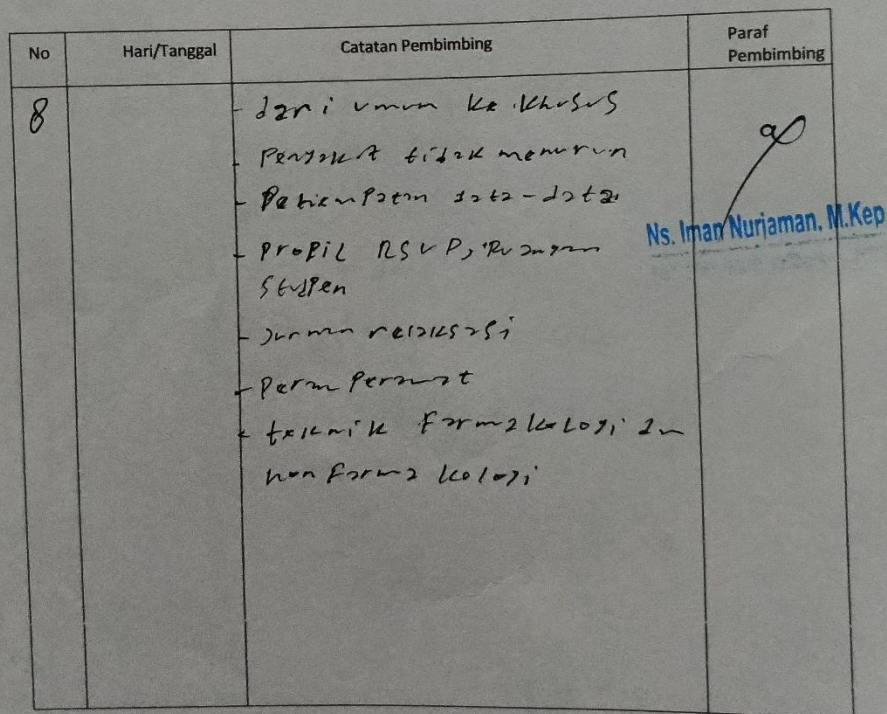 No Hari/Tanggal Catatan Pembimbing Paraf Pembimbing
8
- dari umum ke khusus
- Penyakit tidak menurun
- data-data
- Propil RSUP, Ruangan
- relaksasi
- Peran Perawat
- teknik Farmakologi dan
non Farmakologi
Ns. Iman Nurjaman, M.Kep